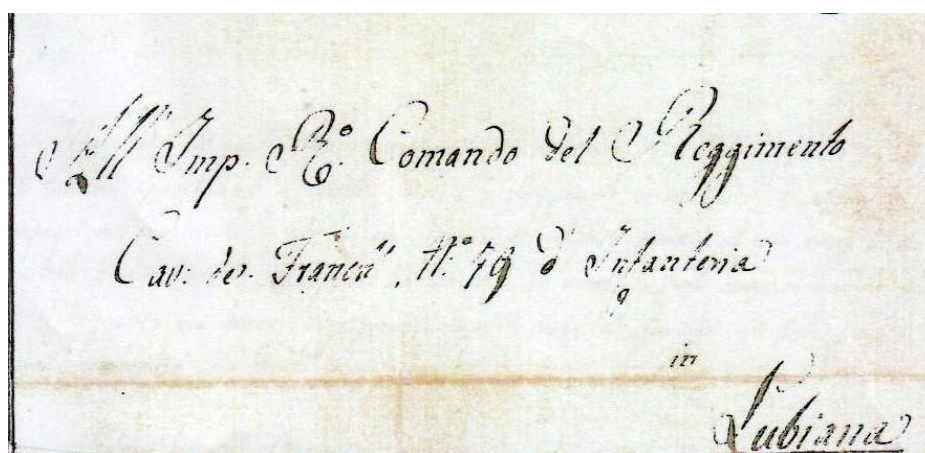 All' Imp. R.º Comando del Reggimento
Cav. de. Franck, N.º 79 d' Infanteria
in
Lubiana